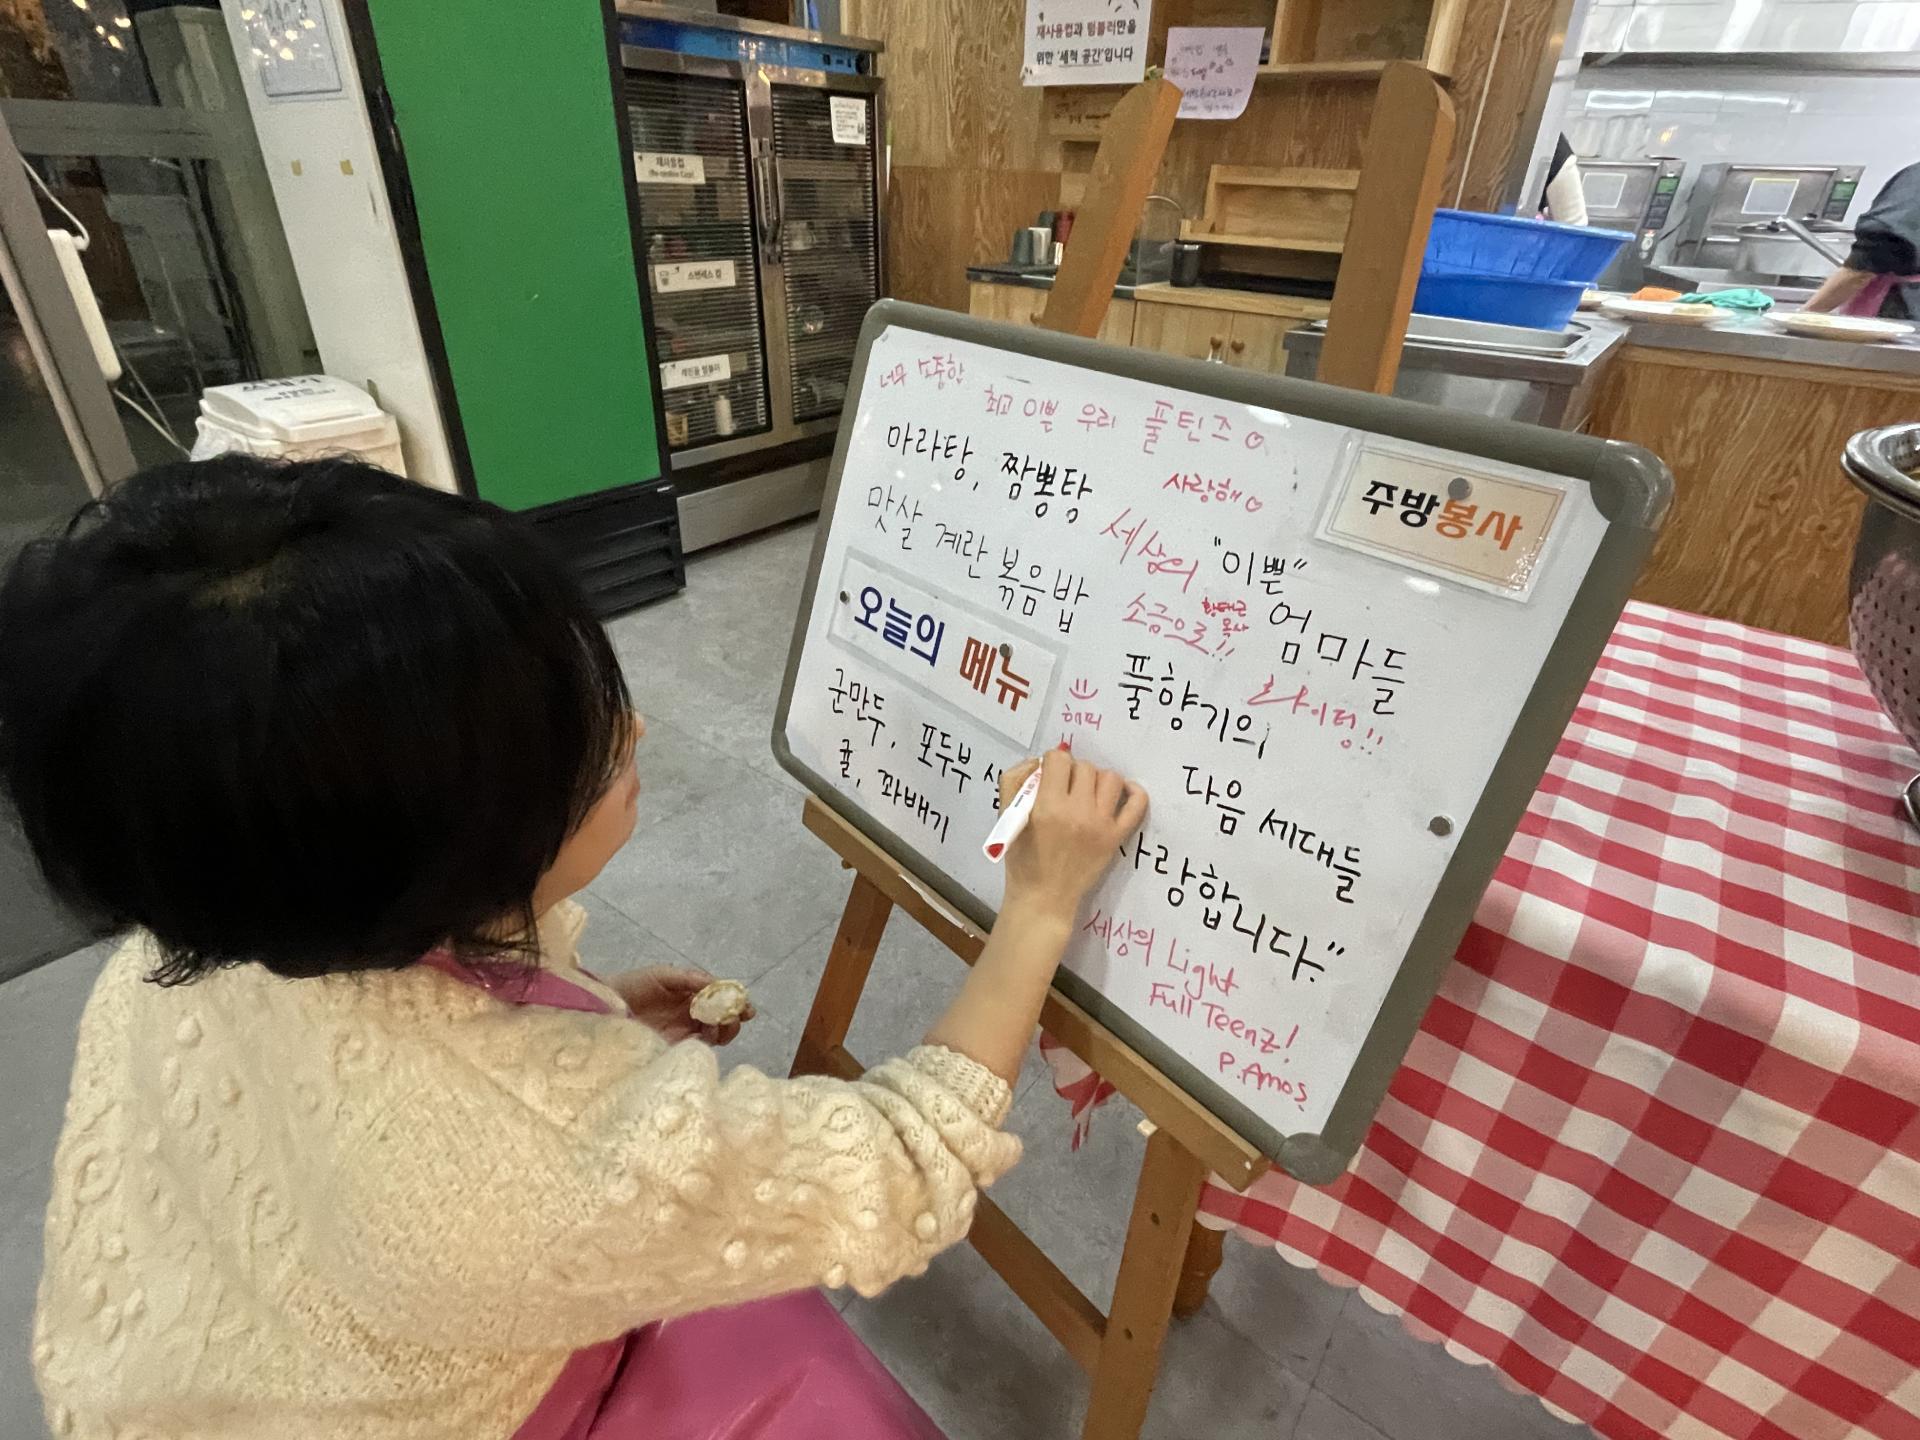 재사용컵과 텀블러만을
위한 '세척 공간'입니다
재사용컵
스텐레스 컵
너무 소중한
최고 이쁜 우리 풀틴즈♡
마라탕, 짬뽕탕
사랑해♡
맛살 계란 볶음밥
주방봉사
세상의 "이쁜"
소금으로!!
황태근
목사
엄마들
오늘의 메뉴
풀향기의
라이팅!!
해피
군만두, 포두부
귤, 꽈배기
다음 세대들
사랑합니다."
세상의 Light
Full Teenz!
P.Amos